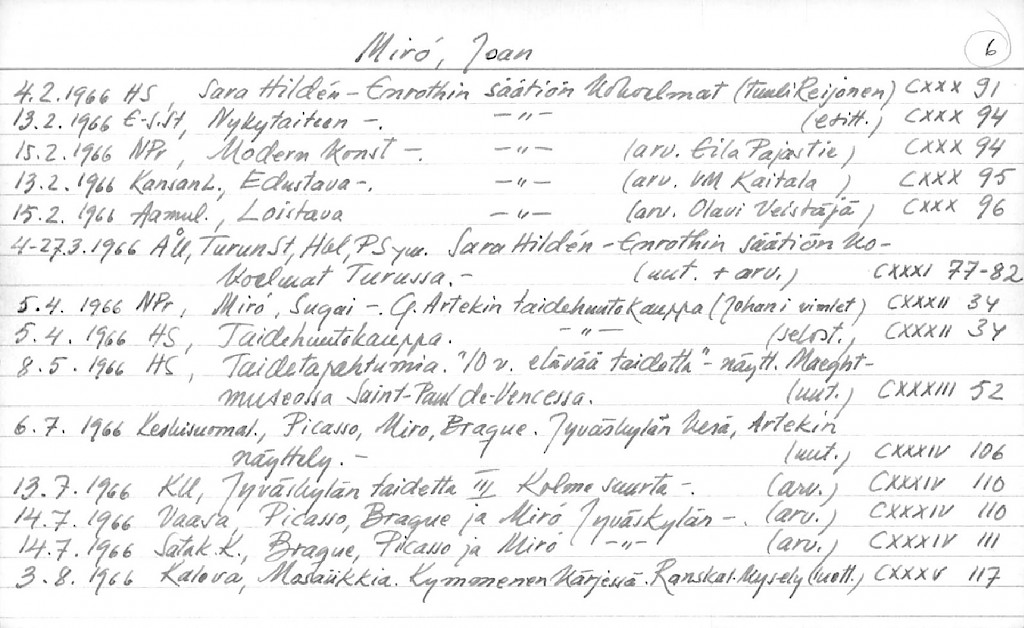 Miró, Joan 6
4.2.1966 HS, Sara Hildén-Enrothin säätiön kokoelmat (Tuuli Reijonen) CXXX 91
13.2.1966 E-S.St, Nykytaiteen -. -"- (esitt.) CXXX 94
15.2.1966 NPr, Modern konst -. -"- (arv. Eila Pajastie) CXXX 94
13.2.1966 KansanL., Edustava -. -"- (arv. VM Kaitala) CXXX 95
15.2.1966 Aamul., Loistava -"- (arv. Olavi Veistäjä) CXXX 96
4-27.3.1966 ÅU, TurunSt, Hbl, PS ym. Sara Hildén-Enrothin säätiön ko-
koelmat Turussa.- (uut. + arv.) CXXXI 77-82
5.4.1966 NPr, Miró, Sugai - G. Artekin taidehuutokauppa (Johani vimlet) CXXXII 34
5.4.1966 HS, Taidehuutokauppa. -"- (selost.) CXXXII 34
8.5.1966 HS, Taidetapahtumia. "10 v. elävää taidetta" - näytt. Maeght-
museossa Saint-Paul de-Vencessa. (uut.) CXXXIII 52
6.7.1966 Keskisuomal., Picasso, Miro, Braque. Jyväskylän Kesä, Artekin
näyttely.- (uut.) CXXXIV 106
13.7.1966 KU, Jyväskylän taidetta III Kolme suurta -. (arv.) CXXXIV 110
14.7.1966 Vaasa, Picasso, Braque ja Miró Jyväskylän -. (arv.) CXXXIV 110
14.7.1966 Satak.K., Braque, Picasso ja Miró -"- (arv.) CXXXIV 111
3.8.1966 Kaleva, Mosaiikkia. Kymmenen kärjessä. Ranskal. kysely (uutt.) CXXXV 117